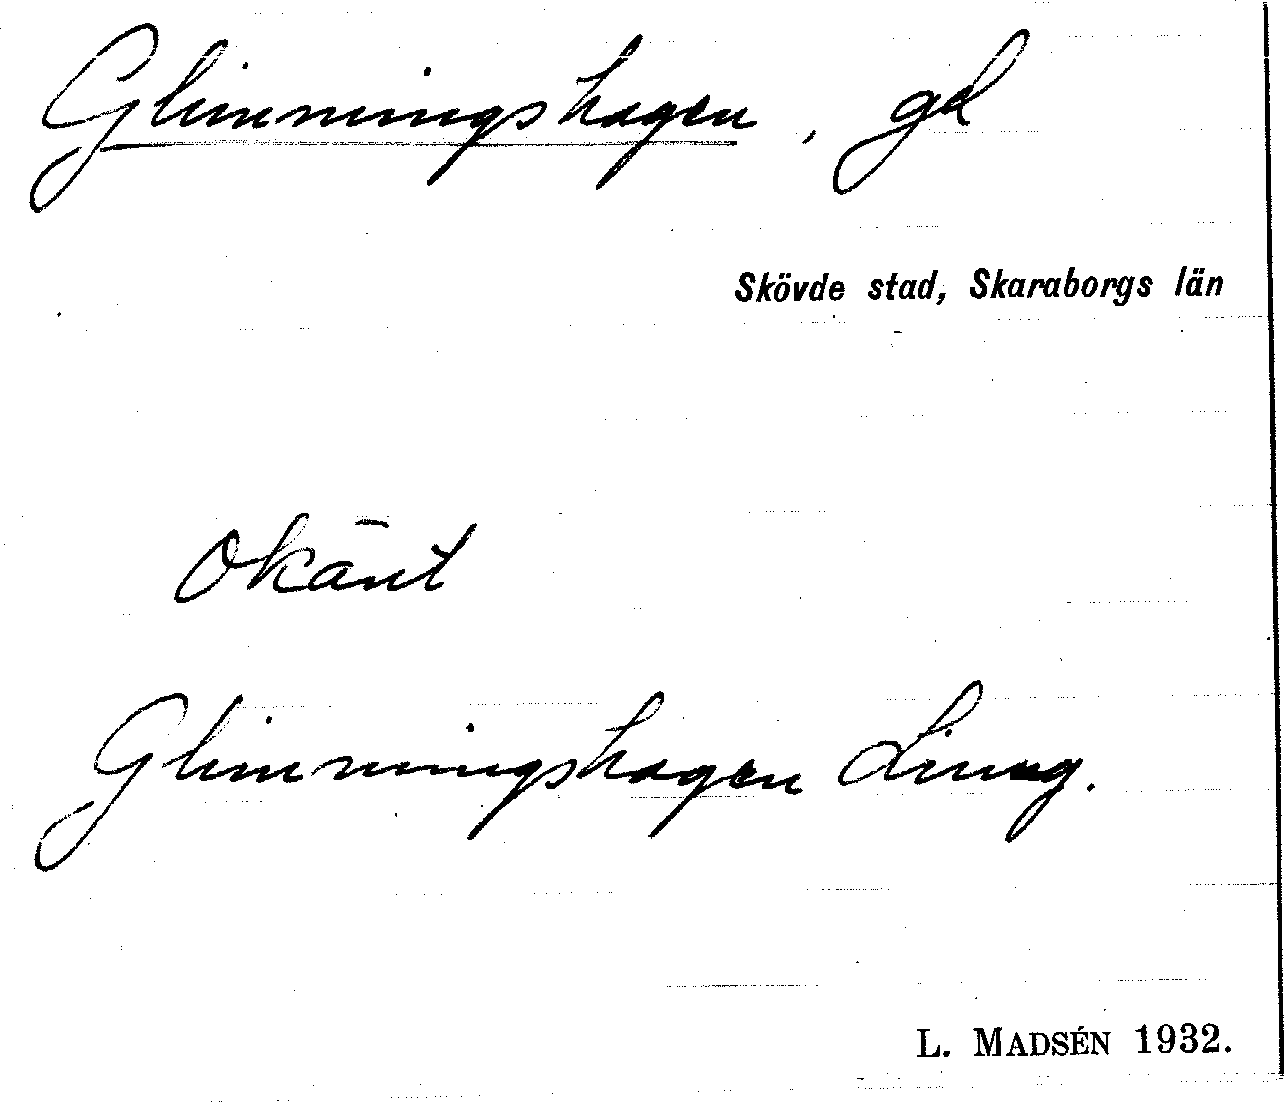 Glimmingshagen, gd
Skövde stad, Skaraborgs län
Okänt
Glimmingshagen Ljung.
L. MADSÉN 1932.